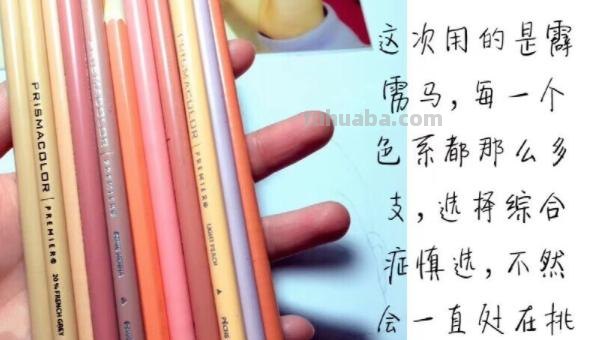 这次用的是霹
雳马，每一个
色系都那么多
支，选择综合
症慎选，不然
会一直处在挑
PRISMACOLOR | PREMIER®
20% FRENCH GREY
PRISMACOLOR | PREMIER®
LIGHT PEACH
PÊCHE